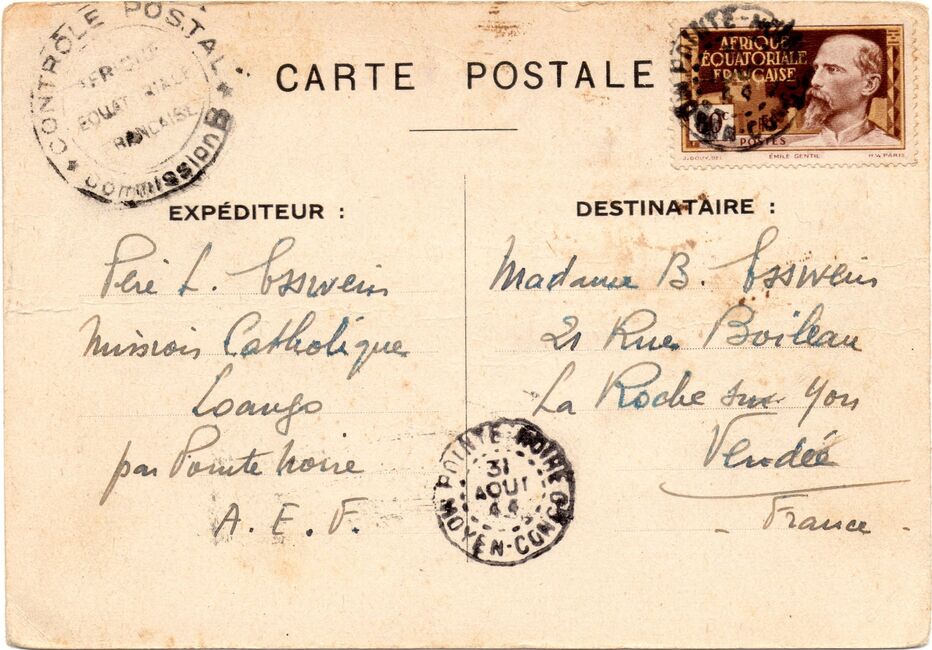 CONTRÔLE POSTAL
AFRIQUE
EQUATORIALE
FRANCAISE
Commission B
CARTE POSTALE
POINTE-NOIRE
AFRIQUE
ÉQUATORIALE
FRANÇAISE
POSTES
J. DOUY. DEL
ÉMILE GENTIL
H.V. PARIS
EXPÉDITEUR :
Père L. Esswein
Mission Catholique
Loango
par Pointe Noire
A. E. F.
DESTINATAIRE :
Madame B. Esswein
21 Rue Boileau
La Roche sur Yon
Vendée
- France -
POINTE-NOIRE
31
AOUT
44
MOYEN-CONGO